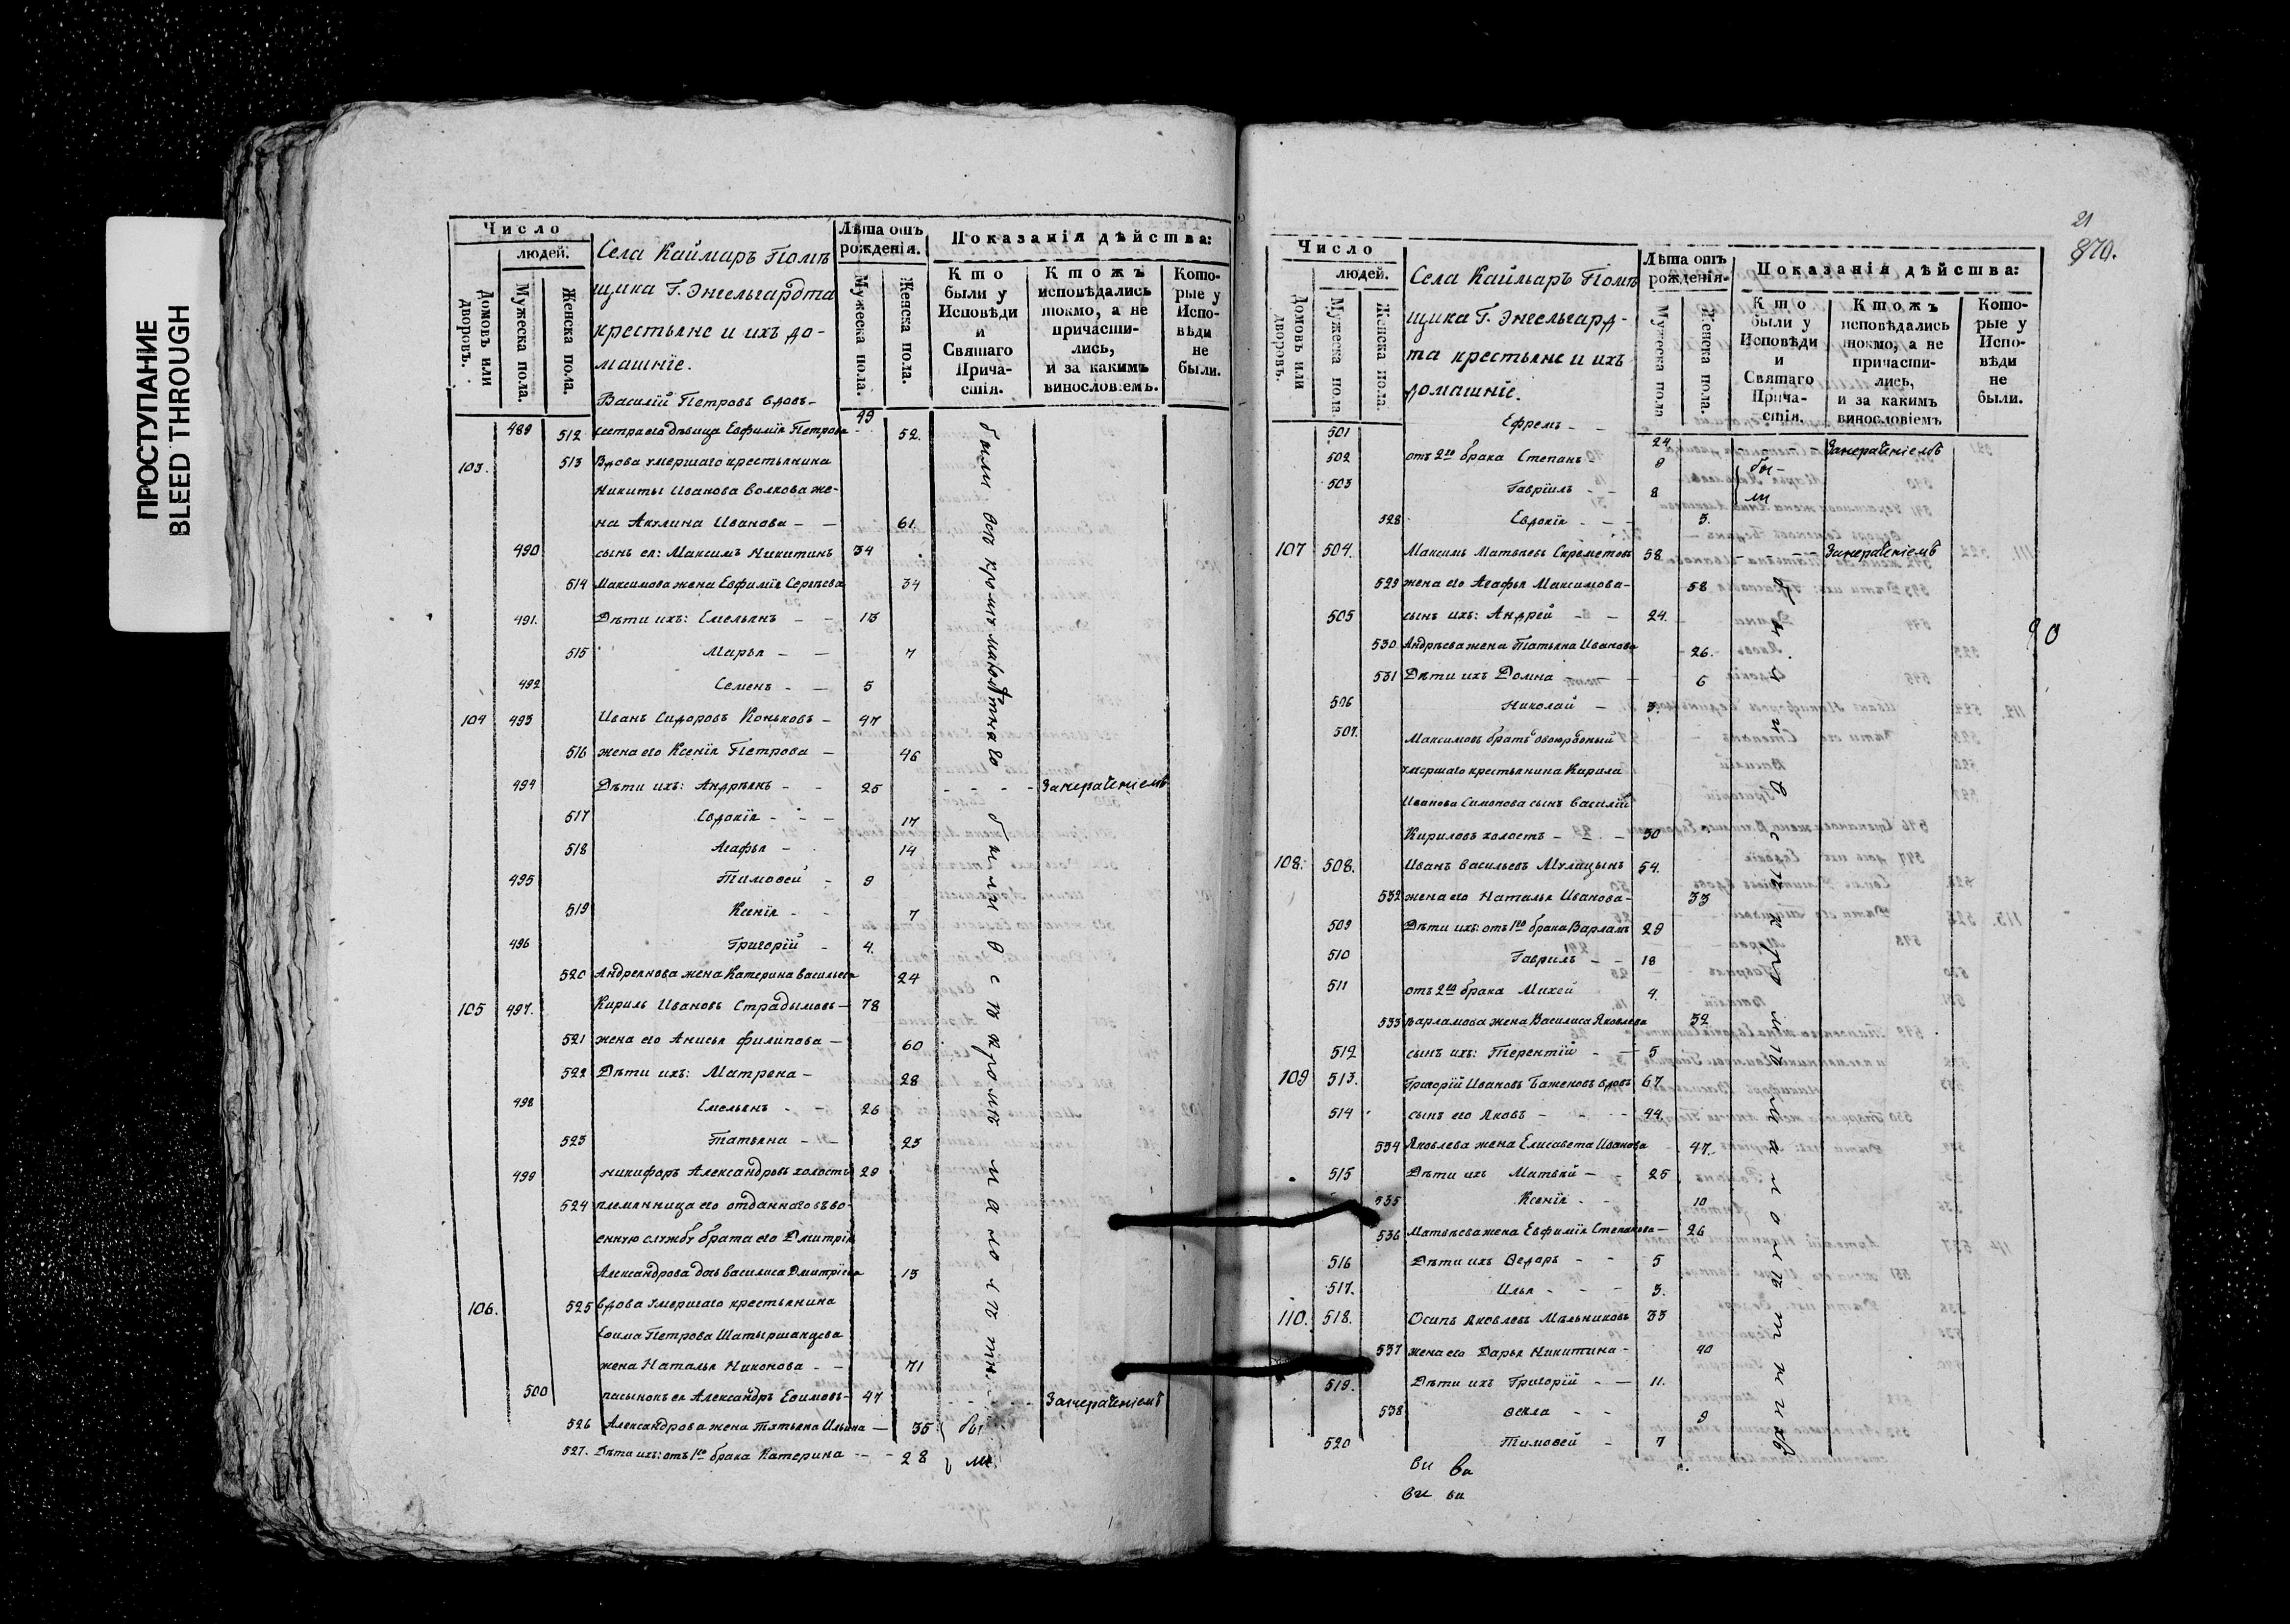 ПРОСТУПАНИЕ
BLEED THROUGH
Число
людей.
Домовъ или дворовъ.
Мужеска пола.
Женска пола.
Села Каймаръ Помѣ-
щика Г. Энгельгардта
крестьяне и ихъ до-
машніе.
Лѣта отъ рожденія.
Мужеска пола.
Женска пола.
Показанія дѣйства:
Кто были у Исповѣди и Святаго Причастія.
Ктожъ исповѣдались токмо, а не причастились, и за какимъ винословіемъ.
Которые у Исповѣди не были.
489 Василій Петровъ вдовъ- 49
512 сестра его дѣвица Евфимія Петрова 52.
103. 513 Вдова умершаго крестьянина
Никиты Иванова Волкова же-
на Акулина Иванова - - 61
490 сынъ ея: Максимъ Никитинъ 34
514 Максимова жена Евфимія Сергѣева 34
491. Дѣти ихъ: Емельянъ - - 13
515 Марья - - 7
492 Семенъ - - 5
104 493 Иванъ Сидоровъ Коньковъ - 47
516 жена его Ксенія Петрова - 46
494 Дѣти ихъ: Андреянъ - - 25 - - - - Занерадѣніемъ
517 Евдокія - - - 17
518 Агафья - 14
495 Тимовей - 9
519 Ксенія - - 7
496 Григорій - 4.
520 Андреянова жена Катерина Васильева 24
105 497. Кирилъ Ивановъ Страдымовъ- 78
521 жена его Анисья Филипова - 60
522 Дѣти ихъ: Матрена - 28
498 Емельянъ - - 26
523 Татьяна - - 23
499 Никифоръ Александровъ холостъ 29
524 племянница его отданнаго въ во-
енную службу брата его Дмитрія
Александрова дочь Василиса Дмитріева 13
106. 525 вдова умершаго крестьянина
Ефима Петрова Шатыршанцева
жена Наталья Никонова - - 71
500 пасынокъ ея Александръ Ефимовъ- 47 - - - - Занерадѣніемъ
526 Александрова жена Татьяна Ильина - 35 бы-
527. Дѣти ихъ: отъ 1го брака Катерина - - - 28 ли
были всѣ кромѣ малолѣтнихъ
были всѣ кромѣ малолѣтн.
21
870.
90
Число
людей.
Домовъ или дворовъ.
Мужеска пола
Женска пола.
Села Каймаръ Помѣ-
щика Г. Энгельгард-
та крестьяне и ихъ
домашніе.
Лѣта отъ рожденія.
Мужеска пола
Женска пола.
Показанія дѣйства:
Кто были у Исповѣди и Святаго Причастія.
Ктожъ исповѣдались токмо, а не причастились, и за какимъ винословіемъ
Которые у Исповѣди не были.
501 Ефремъ - - 24 - - Занерадѣніемъ
502 отъ 2го брака Степанъ - 9 бы-
503 Гавріилъ - - 8 ли
528 Евдокія - - - 3.
107 504. Максимъ Матвѣевъ Скреметовъ 58 - - - Занерадѣніемъ
529 жена его Агафья Максимова - 58
505 сынъ ихъ: Андрей - - 24.
530 Андреева жена Татьяна Иванова 26.
531 Дѣти ихъ Домна - - 6
506 Николай - 3.
507. Максимовъ братъ двоюродный
умершаго крестьянина Кирила
Иванова Симонова сынъ Василій
Кириловъ холостъ - - - 30
108. 508. Иванъ Васильевъ Мулицынъ 54.
532 жена его Наталья Иванова - 33
509 Дѣти ихъ: отъ 1го брака Варламъ 29
510 Гаврилъ - - 18
511 отъ 2го брака Михей 4.
533 Варламова жена Василиса Яковлева 32
512 сынъ ихъ: Терентій - - 5
109 513. Григорій Ивановъ Баженовъ вдовъ 67
514 сынъ его Яковъ - - - 44.
534 Яковлева жена Елисавета Иванова 47.
515 Дѣти ихъ Матвѣй - - 25
535 Ксенія - - 10
536 Матвѣева жена Евфимія Степанова - 26
516 Дѣти ихъ Ѳедоръ - - 5
517. Илья - - - 3.
110. 518. Осипъ Яковлевъ Мѣльниковъ 33
537 жена его Дарья Никитина - 40
519. Дѣти ихъ Григорій - - 11.
538 Ѳекла - - 9
520 Тимоѳей - 7
были всѣ кромѣ малолѣтнихъ